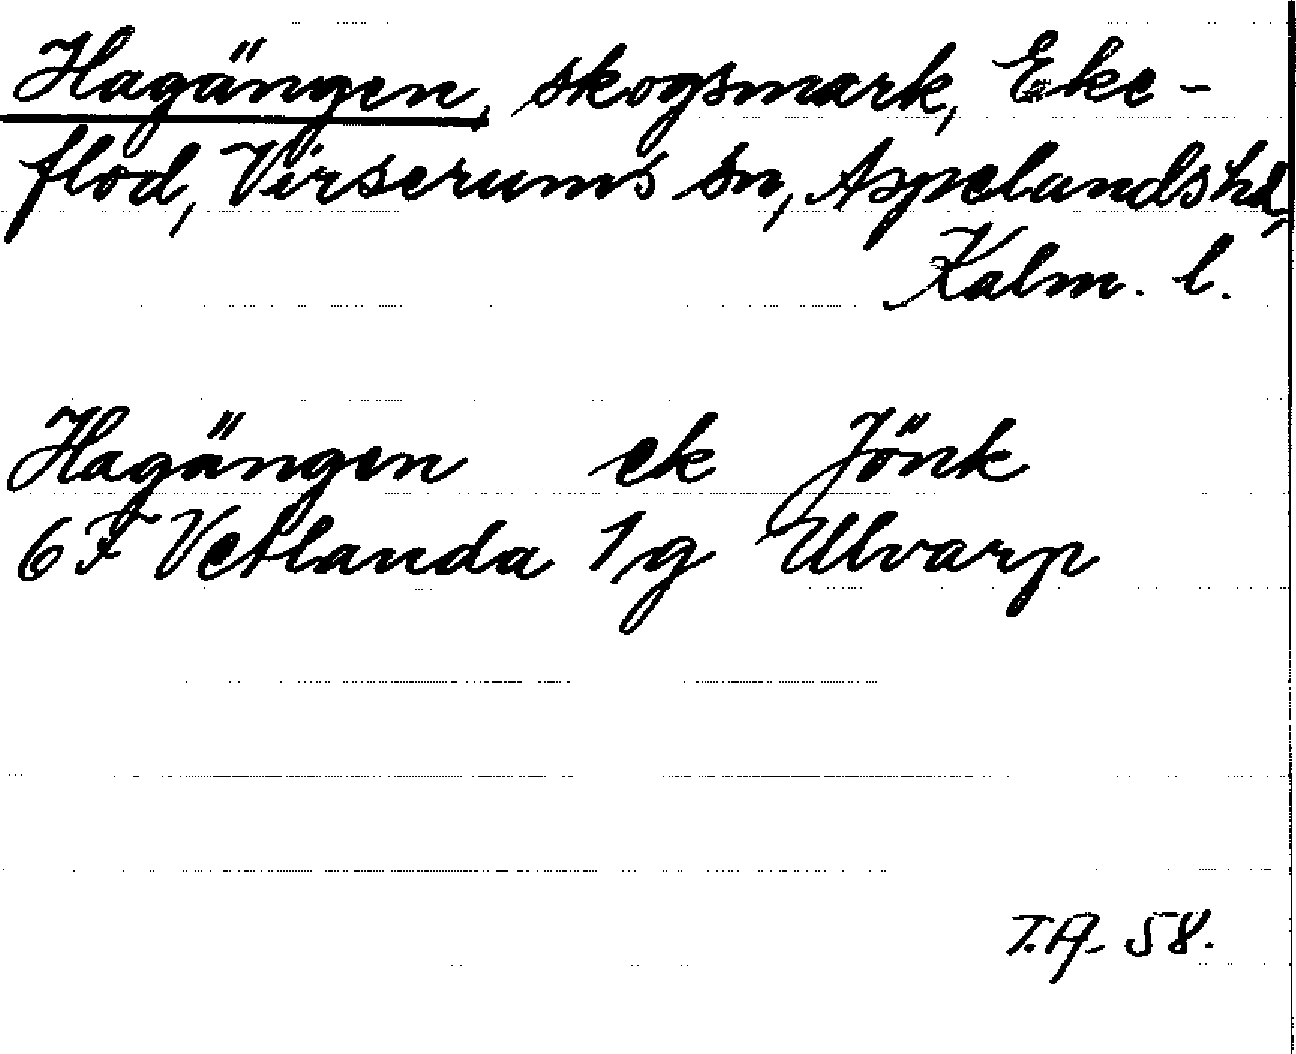 Hagängen, skogsmark, Eke-
flod, Virserums sn, Aspelands hd,
Kalm. l.
Hagängen ek Jönk
6F Vetlanda 1g Ulvarp
T.A. 58.